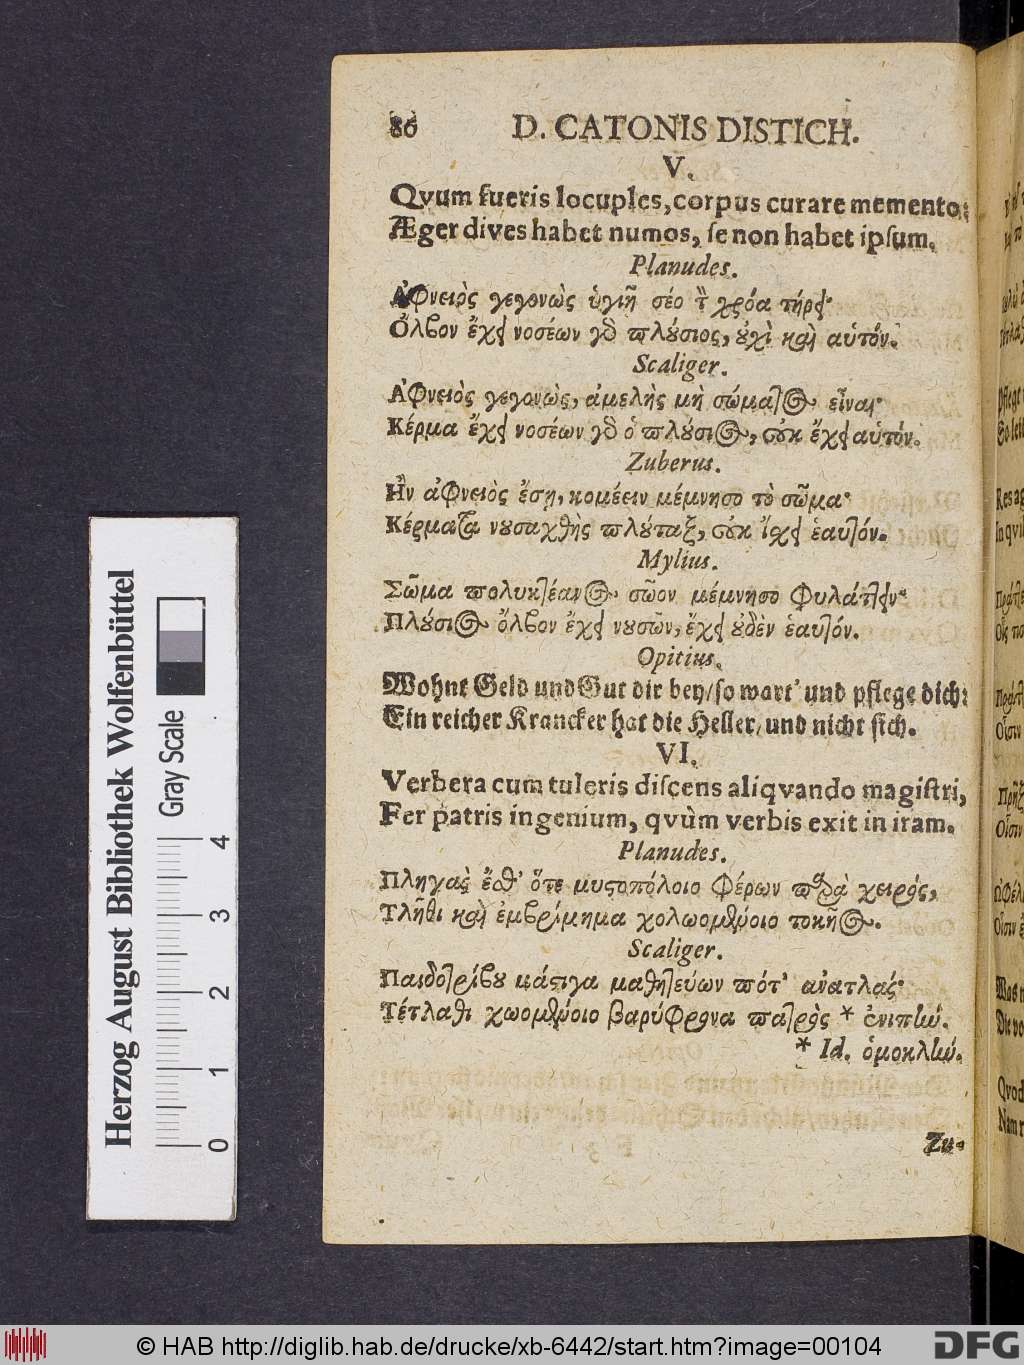 86 D. CATONIS DISTICH.
V.
Qvum fueris locuples, corpus curare memento:
Æger dives habet numos, ſe non habet ipſum.
Planudes.
Ἀφνειὸς γεγονὼς ὑγιῆ σέο τ̀ χρόα τήρει·
Ὄλβον ἔχει νοσέων γὸ πλούσιος, οὐχὶ καὶ αὑτόν.
Scaliger.
Ἀφνειὸς γεγονὼς, ἀμελὴς μὴ σώματος εἶναι·
Κέρμα ἔχει νοσέων γὸ ὁ πλούσιος, οὐκ ἔχει αὑτόν.
Zuberus.
Ἢν ἀφνειὸς ἔσῃ, κομέειν μέμνησο τὸ σῶμα·
Κέρματα νουσαχθὴς πλούταξ, οὐκ ἴχει ἑαυτόν.
Mylius.
Σῶμα πολυκτέανος σῶον μέμνησο φυλάττειν·
Πλούσιος ὄλβον ἔχει νουσῶν, ἔχει οὐδὲν ἑαυτόν.
Opitius.
Wohnt Geld und Gut dir bey/ ſo wart' und pflege dich:
Ein reicher Krancker hat die Heller/ und nicht ſich.
VI.
Verbera cum tuleris diſcens aliqvando magiſtri,
Fer patris ingenium, qvùm verbis exit in iram.
Planudes.
Πληγὰς ἔσθ' ὅτε μυστοπόλοιο φέρων παρὰ χειρός,
Τλῆθι καὶ ἐμβρίμημα χολωομένοιο τοκῆος.
Scaliger.
Παιδοτρίβου μάστιγα μαθητεύων πότ' ἀνατλάς·
Τέτλαθι χωομένοιο βαρύφρονα πατρὸς * ἐνιπήν.
* Id. ὁμοκλήν.
Zu-
Herzog August Bibliothek Wolfenbüttel
Gray Scale
0 1 2 3 4
© HAB http://diglib.hab.de/drucke/xb-6442/start.htm?image=00104
DFG